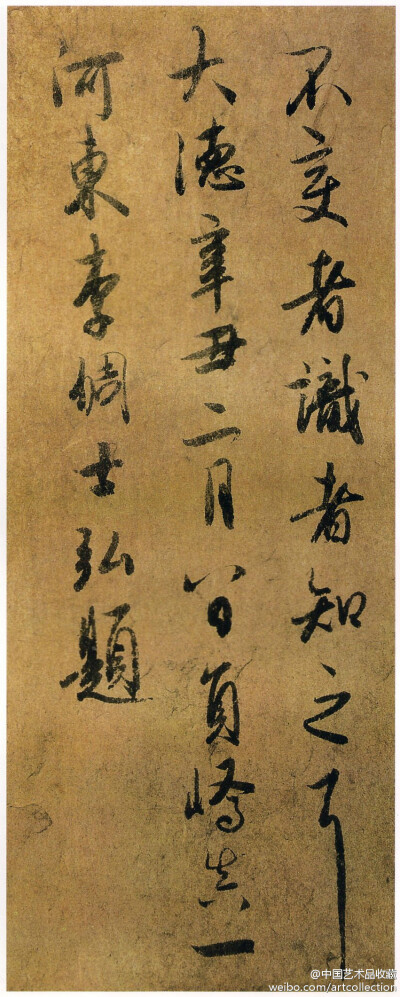 不变者識者知之耳
大德辛丑二月八日員嶠真一
河東李倜士弘題
@中国艺术品收藏
weibo.com/artcollection